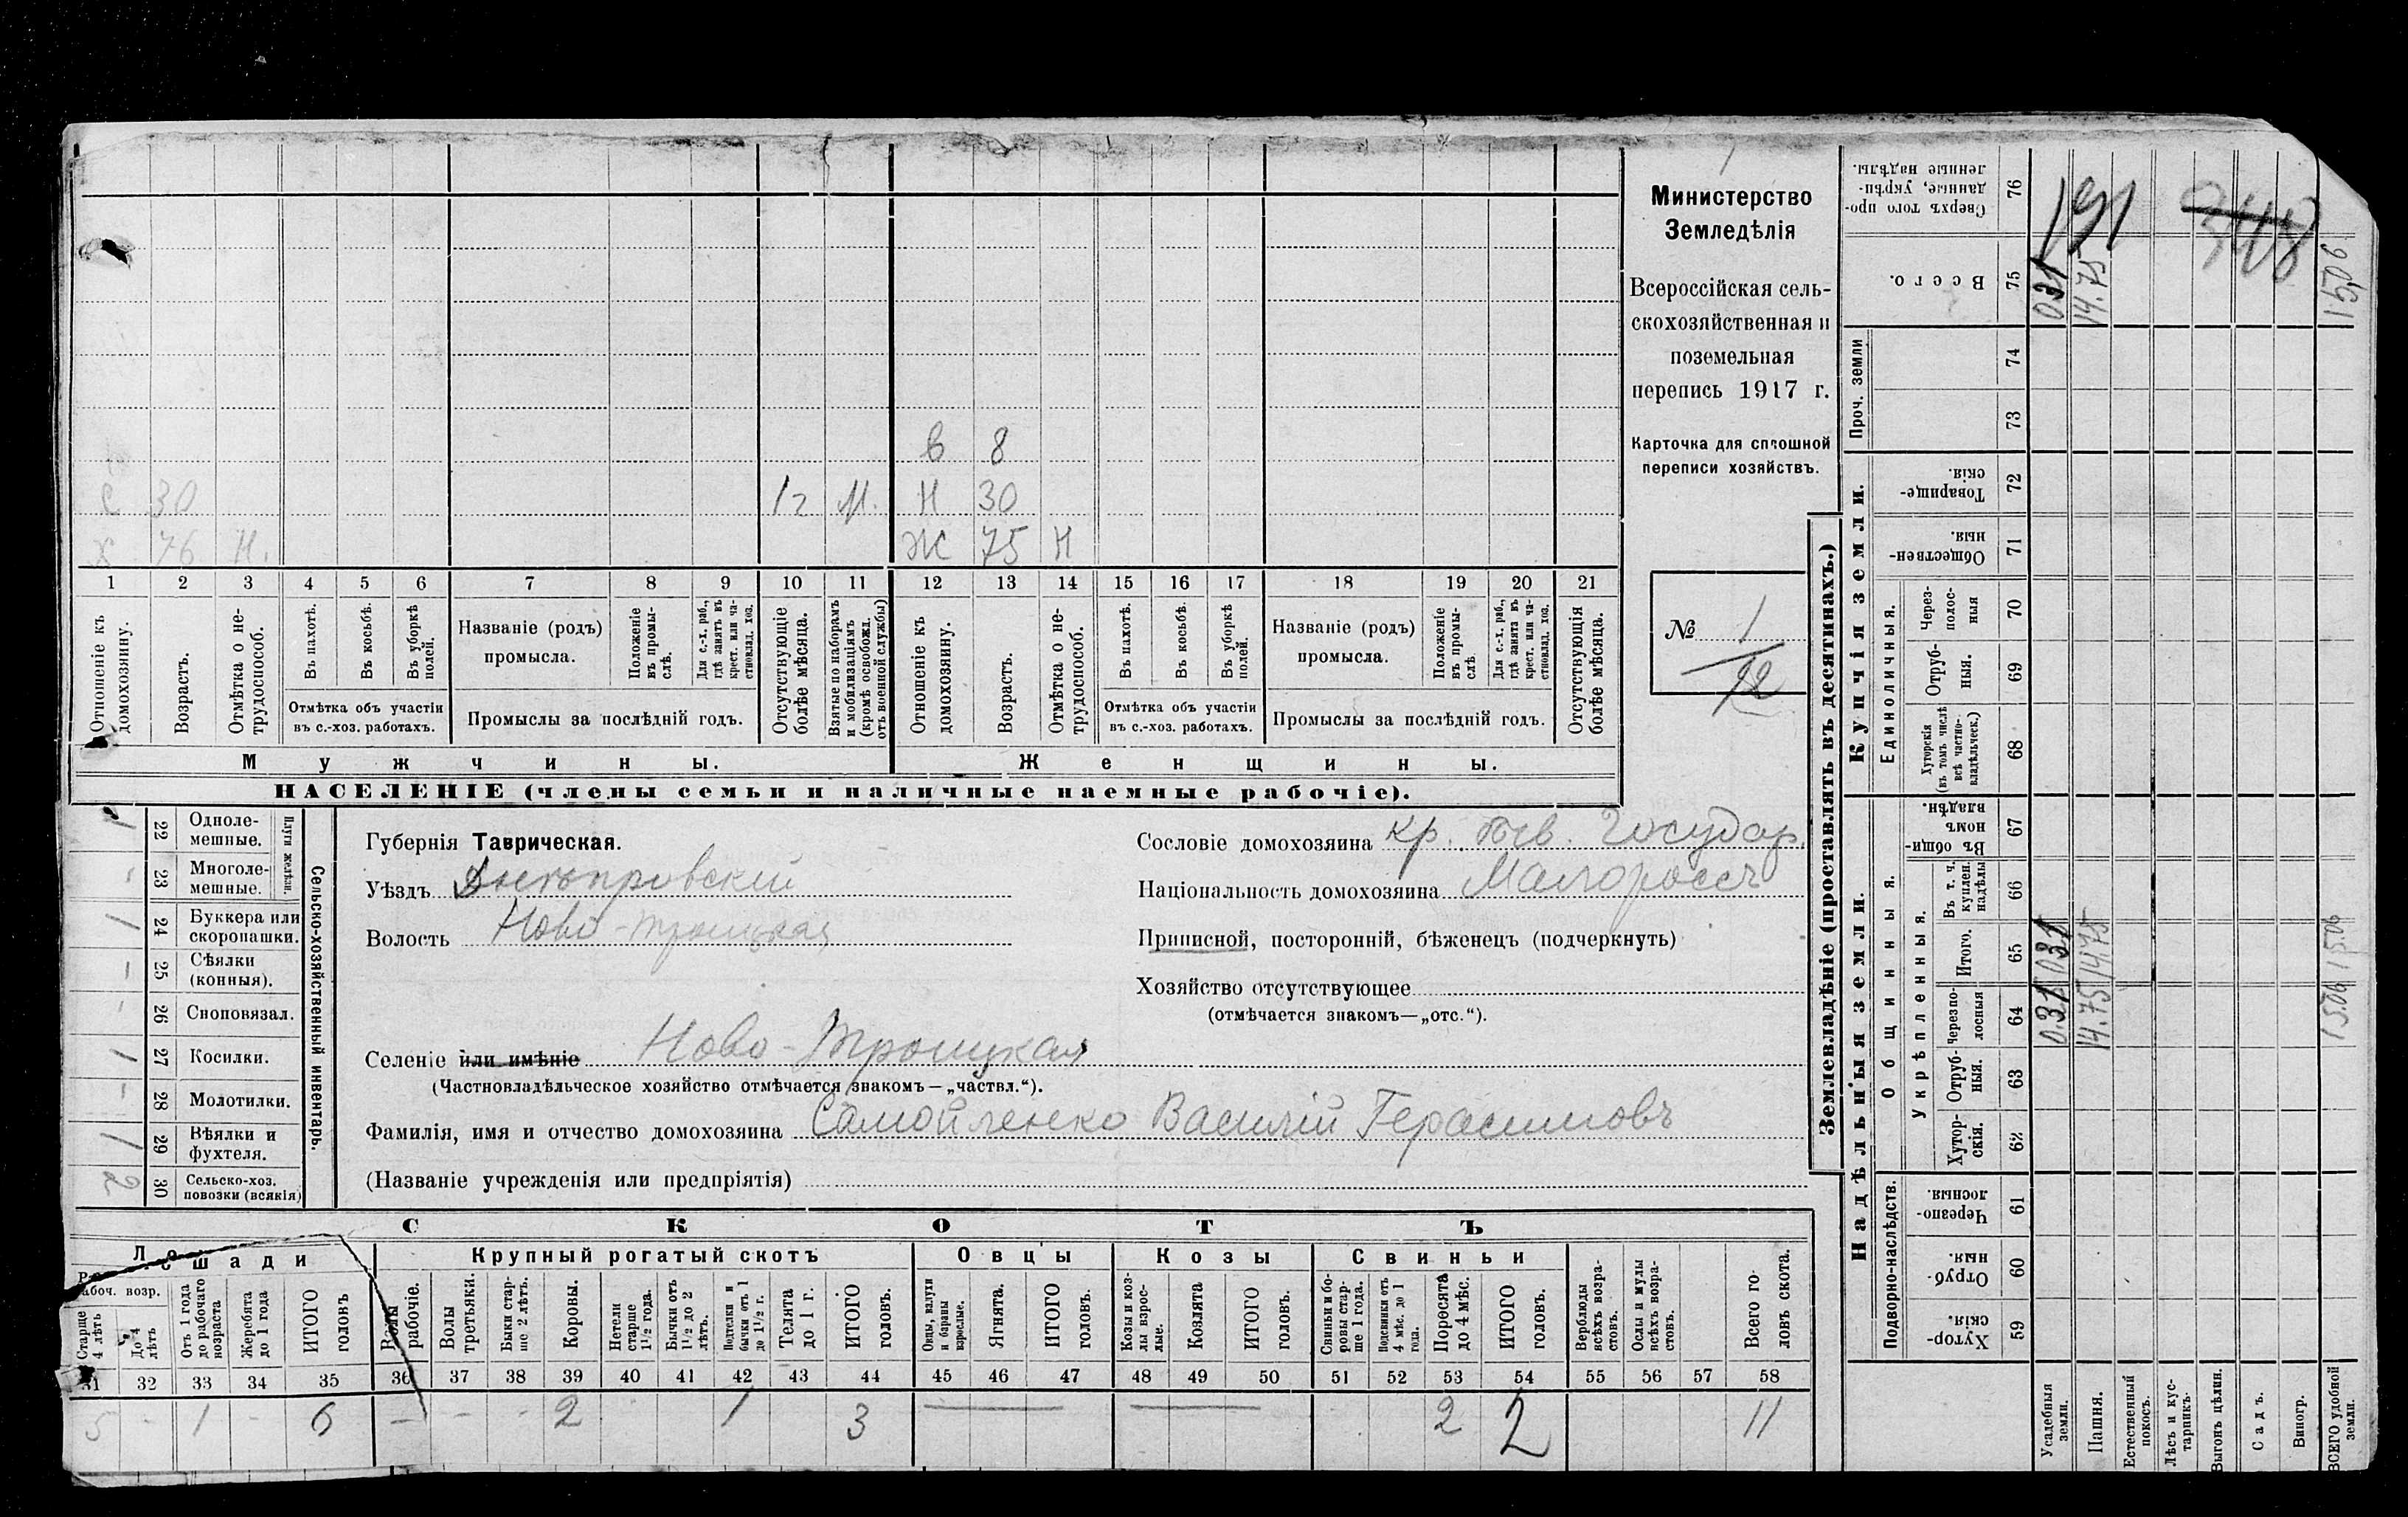 Министерство
Земледѣлія
Всероссійская сель-
скохозяйственная и
поземельная
перепись 1917 г.
Карточка для сплошной
переписи хозяйствъ.
№ 1
12
в 8
с 30 1 г М. Н 30
х 76 Н. Ж 75 Н
1 2 3 4 5 6 7 8 9 10 11 12 13 14 15 16 17 18 19 20 21
Отношеніе къ домохозяину.
Возрастъ.
Отмѣтка о не-трудоспособ.
Въ пахотѣ.
Въ косьбѣ.
Въ уборкѣ полей.
Отмѣтка объ участіи въ с.-хоз. работахъ.
Названіе (родъ) промысла.
Положеніе въ промы-слѣ.
Для с.-х. раб., гдѣ занятъ въ крест. или ча-стновлад. хоз.
Промыслы за послѣдній годъ.
Отсутствующіе болѣе мѣсяца.
Взятые по наборамъ и мобилизаціямъ (кромѣ освобожд. отъ военной службы)
Отношеніе къ домохозяину.
Возрастъ.
Отмѣтка о не-трудоспособ.
Въ пахотѣ.
Въ косьбѣ.
Въ уборкѣ полей.
Отмѣтка объ участіи въ с.-хоз. работахъ.
Названіе (родъ) промысла.
Положеніе въ промы-слѣ
Для с.-х. раб., гдѣ занята въ крест. или ча-стновлад. хоз.
Промыслы за послѣдній годъ.
Отсутствующія болѣе мѣсяца.
Мужчины. Женщины.
НАСЕЛЕНІЕ (члены семьи и наличные наемные рабочіе).
Сельско-хозяйственный инвентарь.
Плуги желѣзн.
1 22 Одноле-мешные.
- 23 Многоле-мешные.
1 24 Буккера или скоропашки.
- 25 Сѣялки (конныя).
- 26 Сноповязал.
1 27 Косилки.
- 28 Молотилки.
1 29 Вѣялки и фухтеля.
2 30 Сельско-хоз. повозки (всякія)
Губернія Таврическая.
Уѣздъ Днѣпровскій
Волость Ново-Троицкая
Селеніе или имѣніе Ново-Троицкая
(Частновладѣльческое хозяйство отмѣчается знакомъ — „частвл.“).
Фамилія, имя и отчество домохозяина Самойленко Василій Герасимовъ
(Названіе учрежденія или предпріятія)
Сословіе домохозяина кр. бчв. Государ.
Національность домохозяина Малороссъ
Приписной, посторонній, бѣженецъ (подчеркнуть)
Хозяйство отсутствующее
(отмѣчается знакомъ—„отс.“).
СКОТЪ
Лошади Крупный рогатый скотъ Овцы Козы Свиньи
Рабоч. возр.
Старше 4 лѣтъ
До 4 лѣтъ
Отъ 1 года до рабочаго возраста
Жеребята до 1 года
ИТОГО головъ
Волы рабочіе.
Волы третьяки.
Быки стар-ше 2 лѣтъ.
Коровы.
Нетели старше 1½ года.
Бычки отъ 1½ до 2 лѣтъ.
Подтелки и бычки отъ 1 до 1½ г.
Телята до 1 г.
ИТОГО головъ.
Овцы, валухи и бараны взрослые.
Ягнята.
ИТОГО головъ.
Козы и коз-лы взрос-лые.
Козлята
ИТОГО головъ.
Свиньи и бо-ровы стар-ше 1 года.
Подсвинки отъ 4 мѣс. до 1 года.
Поросята до 4 мѣс.
ИТОГО головъ.
Верблюды всѣхъ возра-стовъ.
Ослы и мулы всѣхъ возра-стовъ.
Всего го-ловъ скота.
31 32 33 34 35 36 37 38 39 40 41 42 43 44 45 46 47 48 49 50 51 52 53 54 55 56 57 58
5 - 1 - 6 - - - 2 1 3 — — 2 2 11
Землевладѣніе (проставлять въ десятинахъ.)
Купчія земли.
Проч. земли
Единоличныя.
Надѣльныя земли.
Общинныя.
Укрѣпленныя.
Подворно-наслѣдств.
Сверхъ того про-данные, укрѣп-ленные надѣлы. 76
Всего. 75 0.31 14.75 15,06
191
348
74
73
Товарище-скія. 72
Обществен-ныя. 71
Через-полос-ныя 70
Отруб-ныя. 69
Хуторскія (въ томъ числѣ всѣ частно-владѣльческ.) 68
Въ общи-номъ владѣн. 67
Въ т. ч. куплен. надѣлы 66
Итого. 65 0.31 14.75 15.06
Черезпо-лосныя 64 0.31 14.75 15.06
Отруб-ныя. 63
Хутор-скія. 62
Черезпо-лосныя. 61
Отруб-ныя. 60
Хутор-скія. 59
Усадебныя земли.
Пашня.
Естественный покосъ.
Лѣсъ и кус-тарникъ.
Выгонъ цѣлин.
Садъ.
Виногр.
ВСЕГО удобной земли.